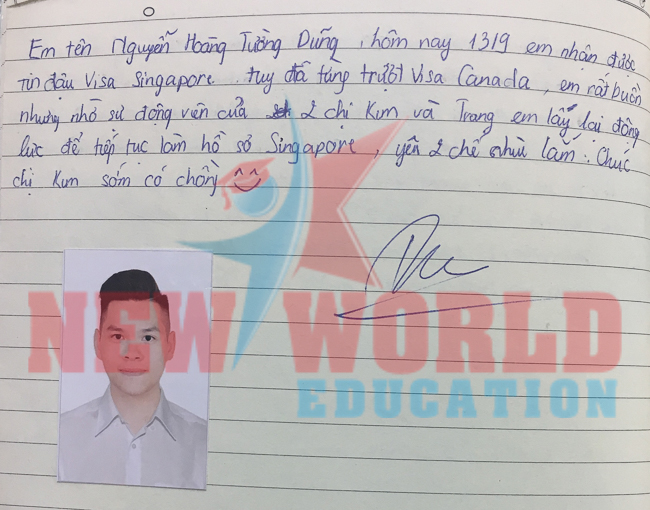 Em tên Nguyễn Hoàng Tường Dũng, hôm nay 1319 em nhận được
tin đậu Visa Singapore. tuy đã từng trượt Visa Canada, em rất buồn
nhưng nhờ sự động viên của 2 chị Kim và Trang em lấy lại động
lực để tiếp tục làm hồ sơ Singapore, yêu 2 chế nhìu lắm. Chúc
chị Kim sớm có chồng
NEW WORLD
EDUCATION